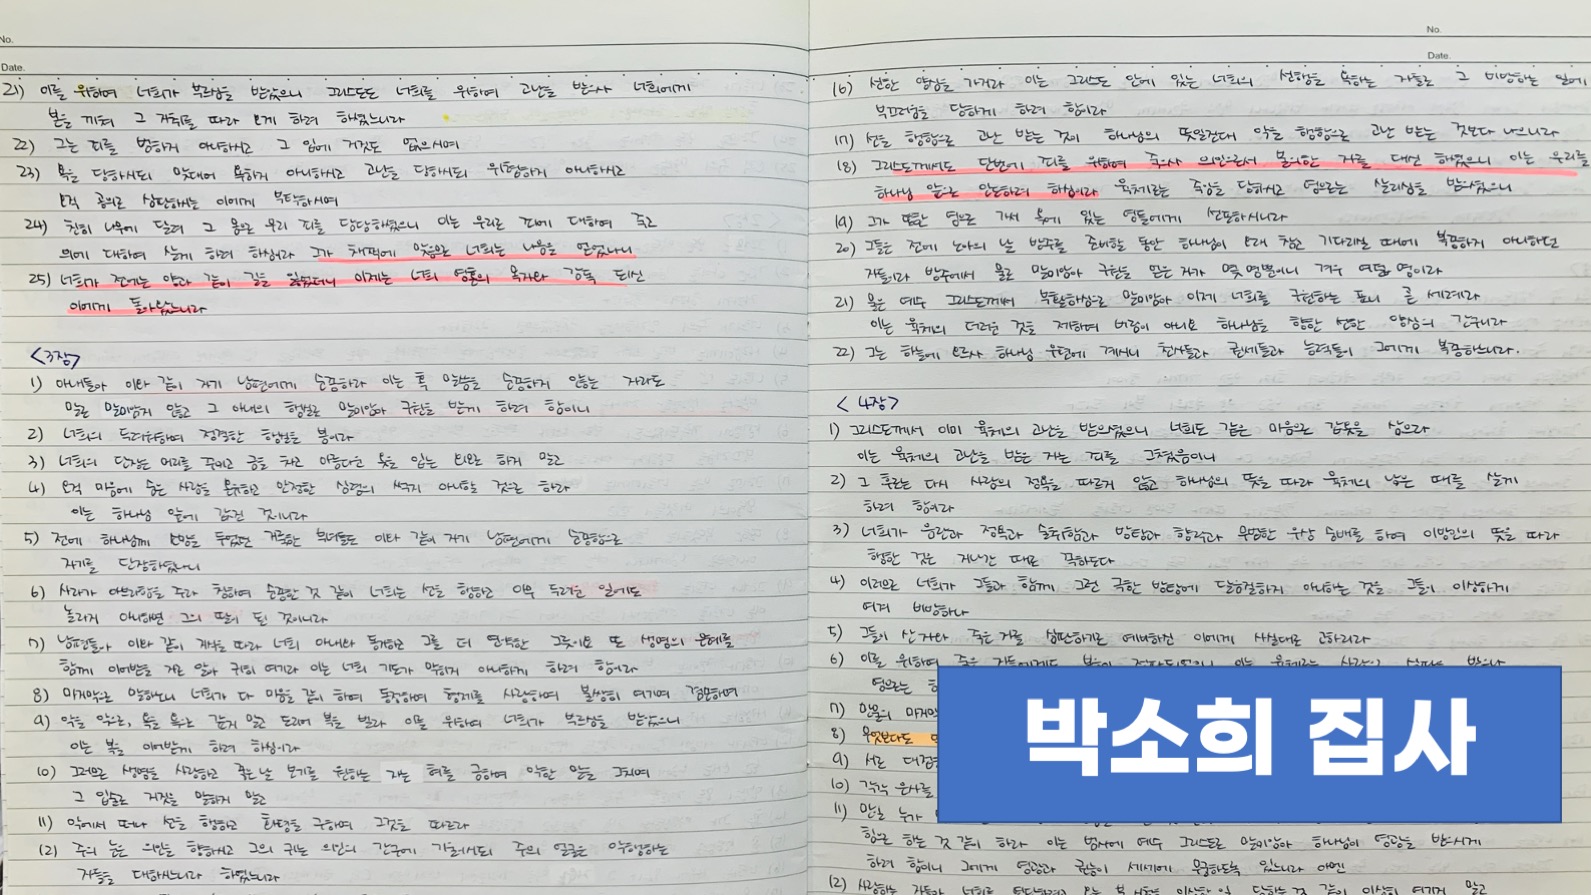 No.
Date.
21) 이를 위하여 너희가 부르심을 받았으니 그리스도도 너희를 위하여 고난을 받으사 너희에게
본을 끼쳐 그 자취를 따라 오게 하려 하셨느니라
22) 그는 죄를 범하지 아니하시고 그 입에 거짓도 없으시며
23) 욕을 당하시되 맞대어 욕하지 아니하시고 고난을 당하시되 위협하지 아니하시고
오직 공의로 심판하시는 이에게 부탁하시며
24) 친히 나무에 달려 그 몸으로 우리 죄를 담당하셨으니 이는 우리로 죄에 대하여 죽고
의에 대하여 살게 하려 하심이라 그가 채찍에 맞음으로 너희는 나음을 얻었나니
25) 너희가 전에는 양과 같이 길을 잃었더니 이제는 너희 영혼의 목자와 감독 되신
이에게 돌아왔느니라
<3장>
1) 아내들아 이와 같이 자기 남편에게 순종하라 이는 혹 말씀을 순종하지 않는 자라도
말로 말미암지 않고 그 아내의 행실로 말미암아 구원을 받게 하려 함이니
2) 너희의 두려워하며 정결한 행실을 봄이라
3) 너희의 단장은 머리를 꾸미고 금을 차고 아름다운 옷을 입는 외모로 하지 말고
4) 오직 마음에 숨은 사람을 온유하고 안정한 심령의 썩지 아니할 것으로 하라
이는 하나님 앞에 값진 것이니라
5) 전에 하나님께 소망을 두었던 거룩한 부녀들도 이와 같이 자기 남편에게 순종함으로
자기를 단장하였나니
6) 사라가 아브라함을 주라 칭하여 순종한 것 같이 너희는 선을 행하고 아무 두려운 일에도
놀라지 아니하면 그의 딸이 된 것이니라
7) 남편들아 이와 같이 지식을 따라 너희 아내와 동거하고 그를 더 연약한 그릇이요 또 생명의 은혜를
함께 이어받을 자로 알아 귀히 여기라 이는 너희 기도가 막히지 아니하게 하려 함이라
8) 마지막으로 말하노니 너희가 다 마음을 같이 하여 동정하며 형제를 사랑하며 불쌍히 여기며 겸손하며
9) 악을 악으로, 욕을 욕으로 갚지 말고 도리어 복을 빌라 이를 위하여 너희가 부르심을 받았으니
이는 복을 이어받게 하려 하심이라
10) 그러므로 생명을 사랑하고 좋은 날 보기를 원하는 자는 혀를 금하여 악한 말을 그치며
그 입술로 거짓을 말하지 말고
11) 악에서 떠나 선을 행하고 화평을 구하며 그것을 따르라
12) 주의 눈은 의인을 향하시고 그의 귀는 의인의 간구에 기울이시되 주의 얼굴은 악행하는
자들을 대하시느니라 하였느니라
No.
Date.
16) 선한 양심을 가지라 이는 그리스도 안에 있는 너희의 선행을 욕하는 자들로 그 비방하는 일에
부끄러움을 당하게 하려 함이라
17) 선을 행함으로 고난 받는 것이 하나님의 뜻일진대 악을 행함으로 고난 받는 것보다 나으니라
18) 그리스도께서도 단번에 죄를 위하여 죽으사 의인으로서 불의한 자를 대신 하셨으니 이는 우리를
하나님 앞으로 인도하려 하심이라 육체로는 죽임을 당하시고 영으로는 살리심을 받으셨으니
19) 그가 또한 영으로 가서 옥에 있는 영들에게 선포하시니라
20) 그들은 전에 노아의 날 방주를 준비할 동안 하나님이 오래 참고 기다리실 때에 복종하지 아니하던
자들이라 방주에서 물로 말미암아 구원을 얻은 자가 몇 명뿐이니 겨우 여덟 명이라
21) 물은 예수 그리스도께서 부활하심으로 말미암아 이제 너희를 구원하는 표니 곧 세례라
이는 육체의 더러운 것을 제하여 버림이 아니요 하나님을 향한 선한 양심의 간구니라
22) 그는 하늘에 오르사 하나님 우편에 계시니 천사들과 권세들과 능력들이 그에게 복종하느니라.
<4장>
1) 그리스도께서 이미 육체의 고난을 받으셨으니 너희도 같은 마음으로 갑옷을 삼으라
이는 육체의 고난을 받은 자는 죄를 그쳤음이니
2) 그 후로는 다시 사람의 정욕을 따르지 않고 하나님의 뜻을 따라 육체의 남은 때를 살게
하려 함이라
3) 너희가 음란과 정욕과 술취함과 방탕과 향락과 무법한 우상 숭배를 하여 이방인의 뜻을 따라
행한 것은 지나간 때로 족하도다
4) 이러므로 너희가 그들과 함께 그런 극한 방탕에 달음질하지 아니하는 것을 그들이 이상하게
여겨 비방하나
5) 그들이 산 자와 죽은 자를 심판하기로 예비하신 이에게 사실대로 고하리라
6) 이를 위하여
영으로는
7) 만물의 마지막
8) 무엇보다도
9) 서로 대접
10) 각각 은사를
11) 만일 누가
힘으로 하는 것 같이 하라 이는 범사에 예수 그리스도로 말미암아 하나님이 영광을 받으시게
하려 함이니 그에게 영광과 권능이 세세에 무궁하도록 있느니라 아멘
12) 사랑하는 자들아 너희를
박소희 집사